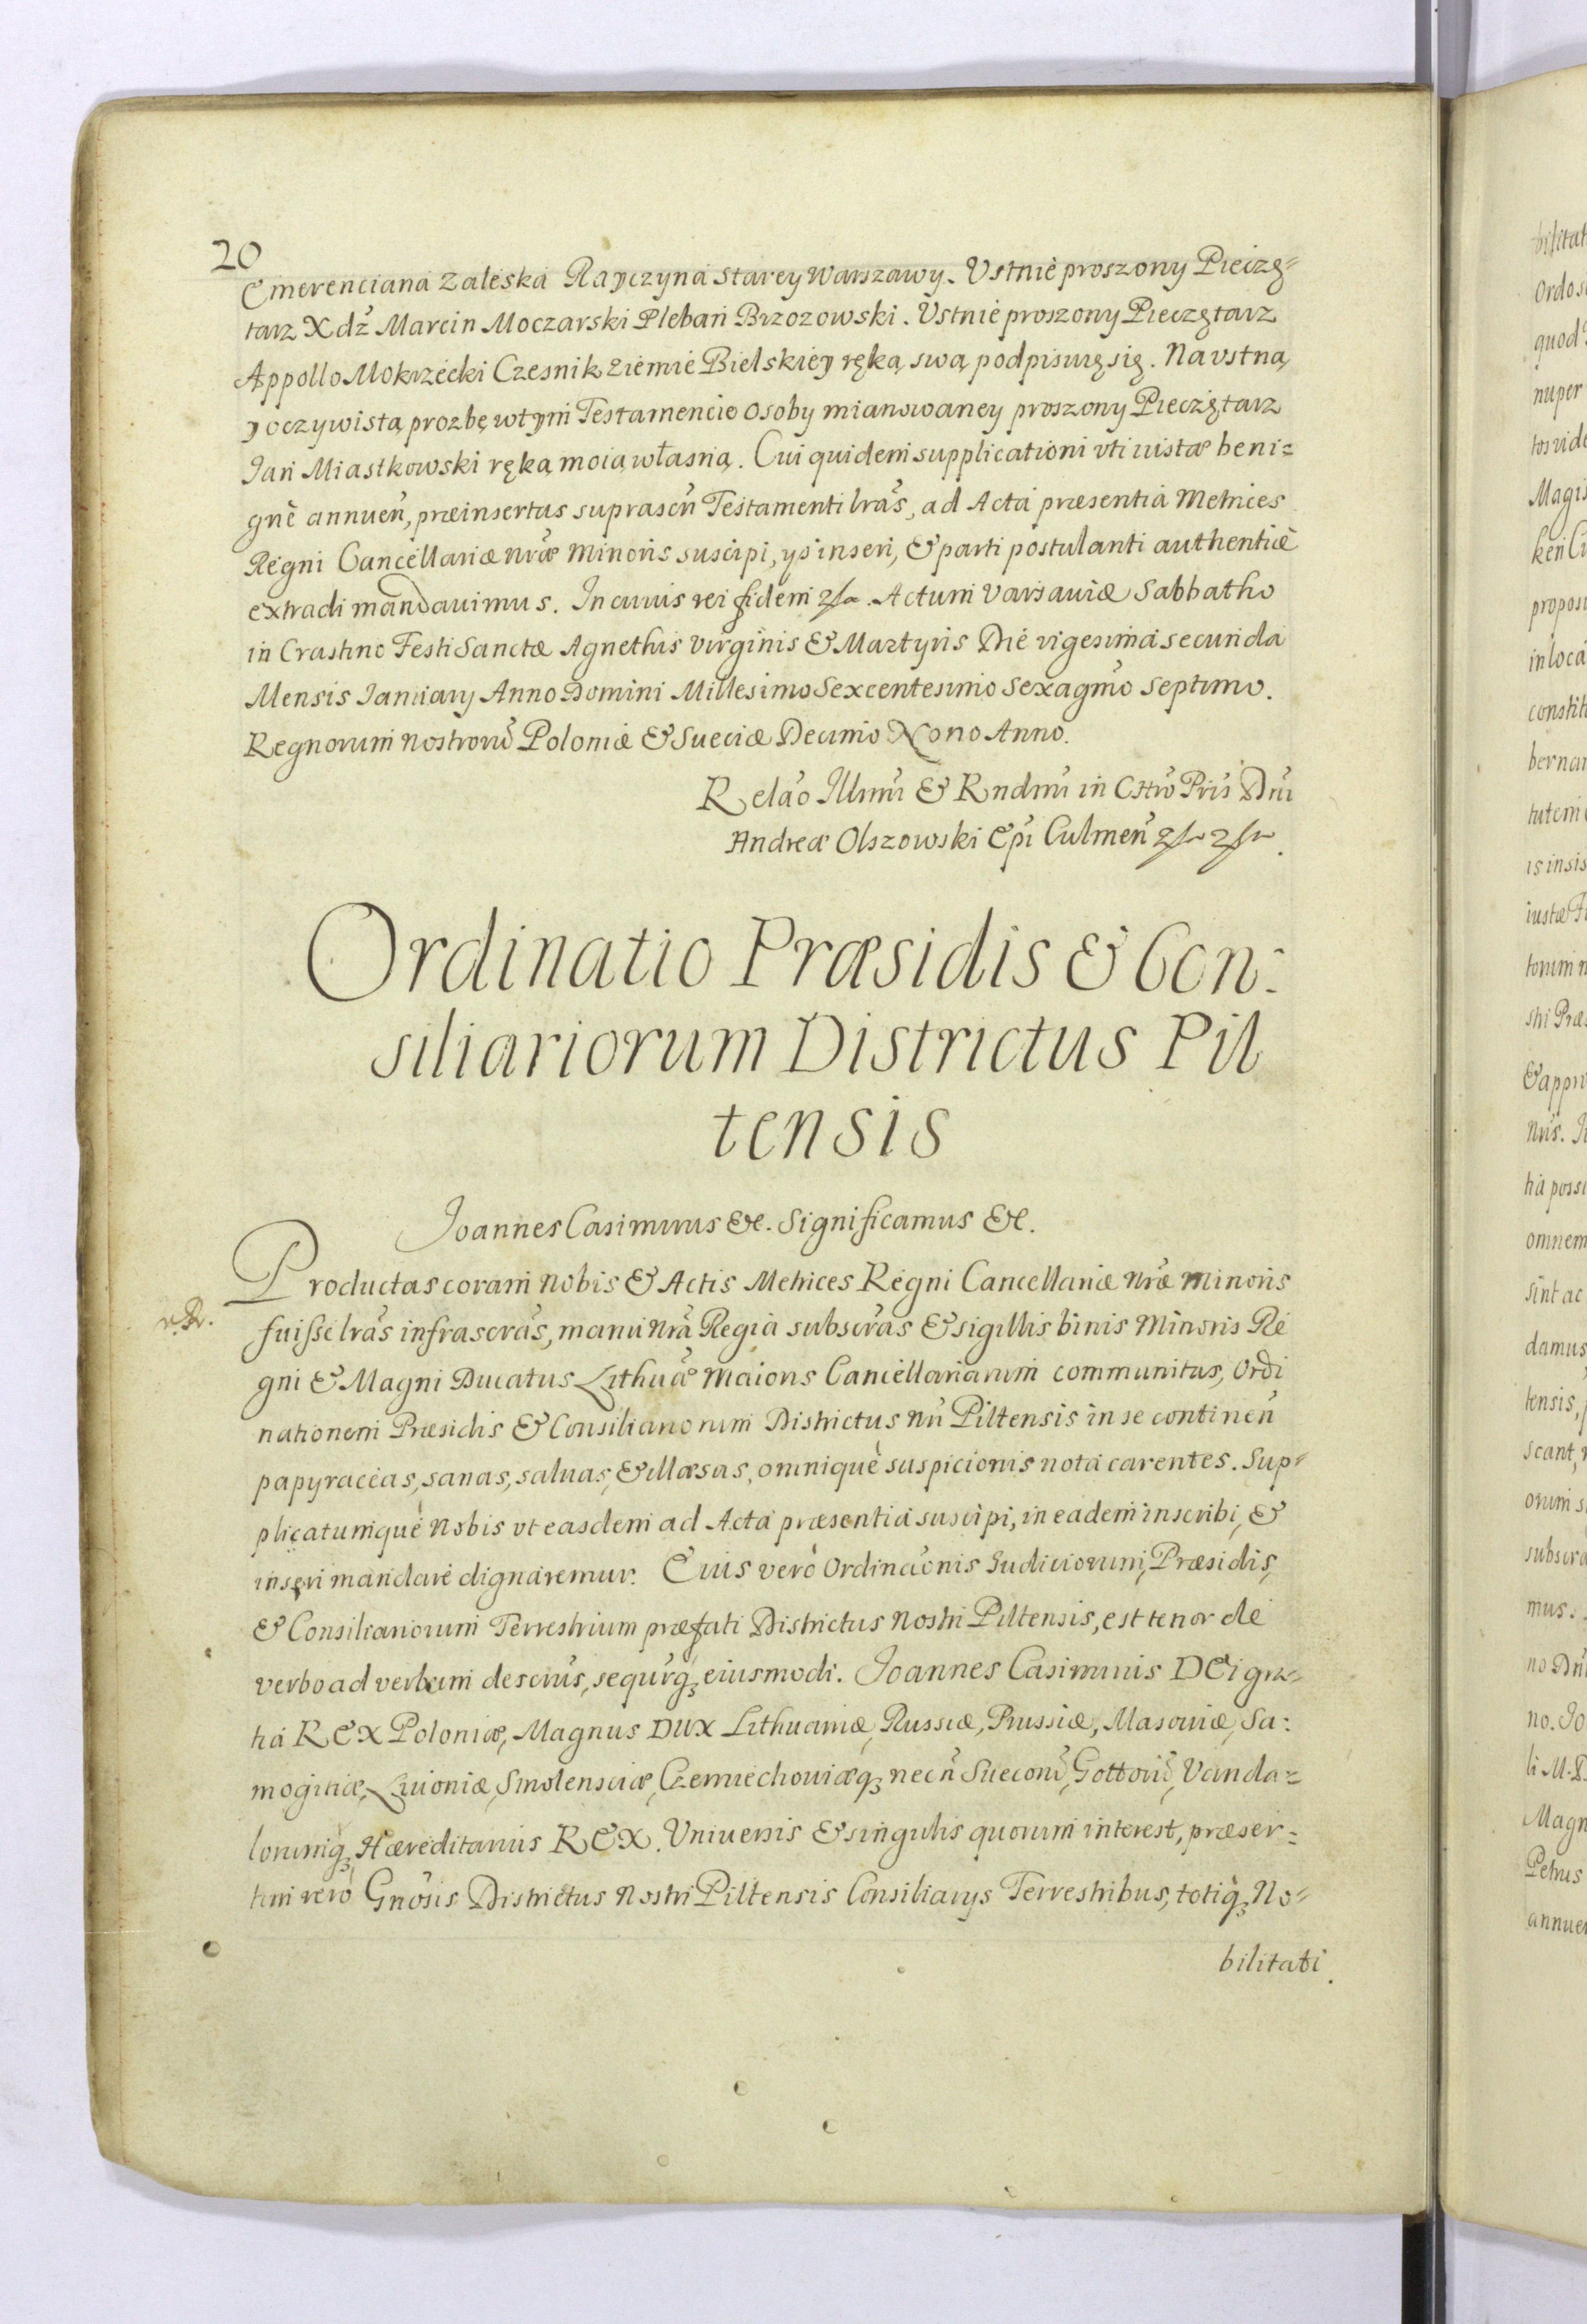 20
Emerenciana Zaleska Rayczyna Starey Warszawy. Ustnie proszony Pieczę=
tarz Xdź Marcin Moczarski Pleban Brzozowski. Ustnie proszony Pieczętarz
Appollo Mokrzecki Czesnik Ziemie Bielskiey ręką swą podpisuię się. Na vstną
y oczywistą prozbę w tym Testamencie Osoby mianowaney proszony Pieczętarz
Jan Miastkowski ręką moią własną. Cui quidem supplicationi vti iustæ beni=
gnè annueñ, præinsertas suprascñ Testamenti lrãs, ad Acta præsentia Metrices
Regni Cancellariæ nrãe Minoris suscipi, ys inseri, & parti postulanti authenticè
extradi mandauimus. In cuius rei fidem . Actum Varsauiæ Sabbatho
in Crastino Festi Sanctæ Agnethis Virginis & Martyris Die vigesima secunda
Mensis January Anno Domini Millesimo Sexcentesimo Sexagmõ Septimo.
Regnorum nostrorũ Poloniæ & Sueciæ Decimo Nono Anno.
Relaõ Illmi & Rndmi in Chrõ Pris Dñi
Andreæ Olszowski Epi Culmeñ
Ordinatio Præsidis & Con:
siliariorum Districtus Pil
tensis
Joannes Casimirus &c. Significamus &c.
Productas coram nobis & Actis Metrices Regni Cancellariæ nrãe minoris
fuisse lrãs infrascrãs, manu nrã Regia subscrãs & sigillis binis Minoris Re
gni & Magni Ducatus Lithuãe Maioris Cancellariarum communitas, Ordi
nationem Præsidis & Consiliariorum Districtus nri Piltensis in se contineñ
papyraceas, sanas, saluas, & illæsas, omniquè suspicionis nota carentes. Sup=
plicatumquè Nobis vt easdem ad Acta præsentia suscipi, in eadem inscribi, &
inseri mandare dignaremur. Cuius verò Ordinaõnis Judiciorum, Præsidis,
& Consiliariorum Terrestrium præfati Districtus Nostri Piltensis, est tenor de
verbo ad verbum descrũs, sequrq, eiusmodi. Joannes Casimirus DEi gra=
tia REX Poloniæ, Magnus DUX Lithuaniæ, Russiæ, Prussiæ, Masouiæ, Sa:
mogitiæ, Liuoniæ, Smolensciæ, Czerniechouiæq, necñ Suecorũ, Gottorũ, Vanda=
lorumq, Hæreditarius REX. Uniuersis & singulis quorum interest, præser=
tim verò Gnõsis Districtus Nostri Piltensis Consiliarys Terrestribus, totiq, No=
bilitati